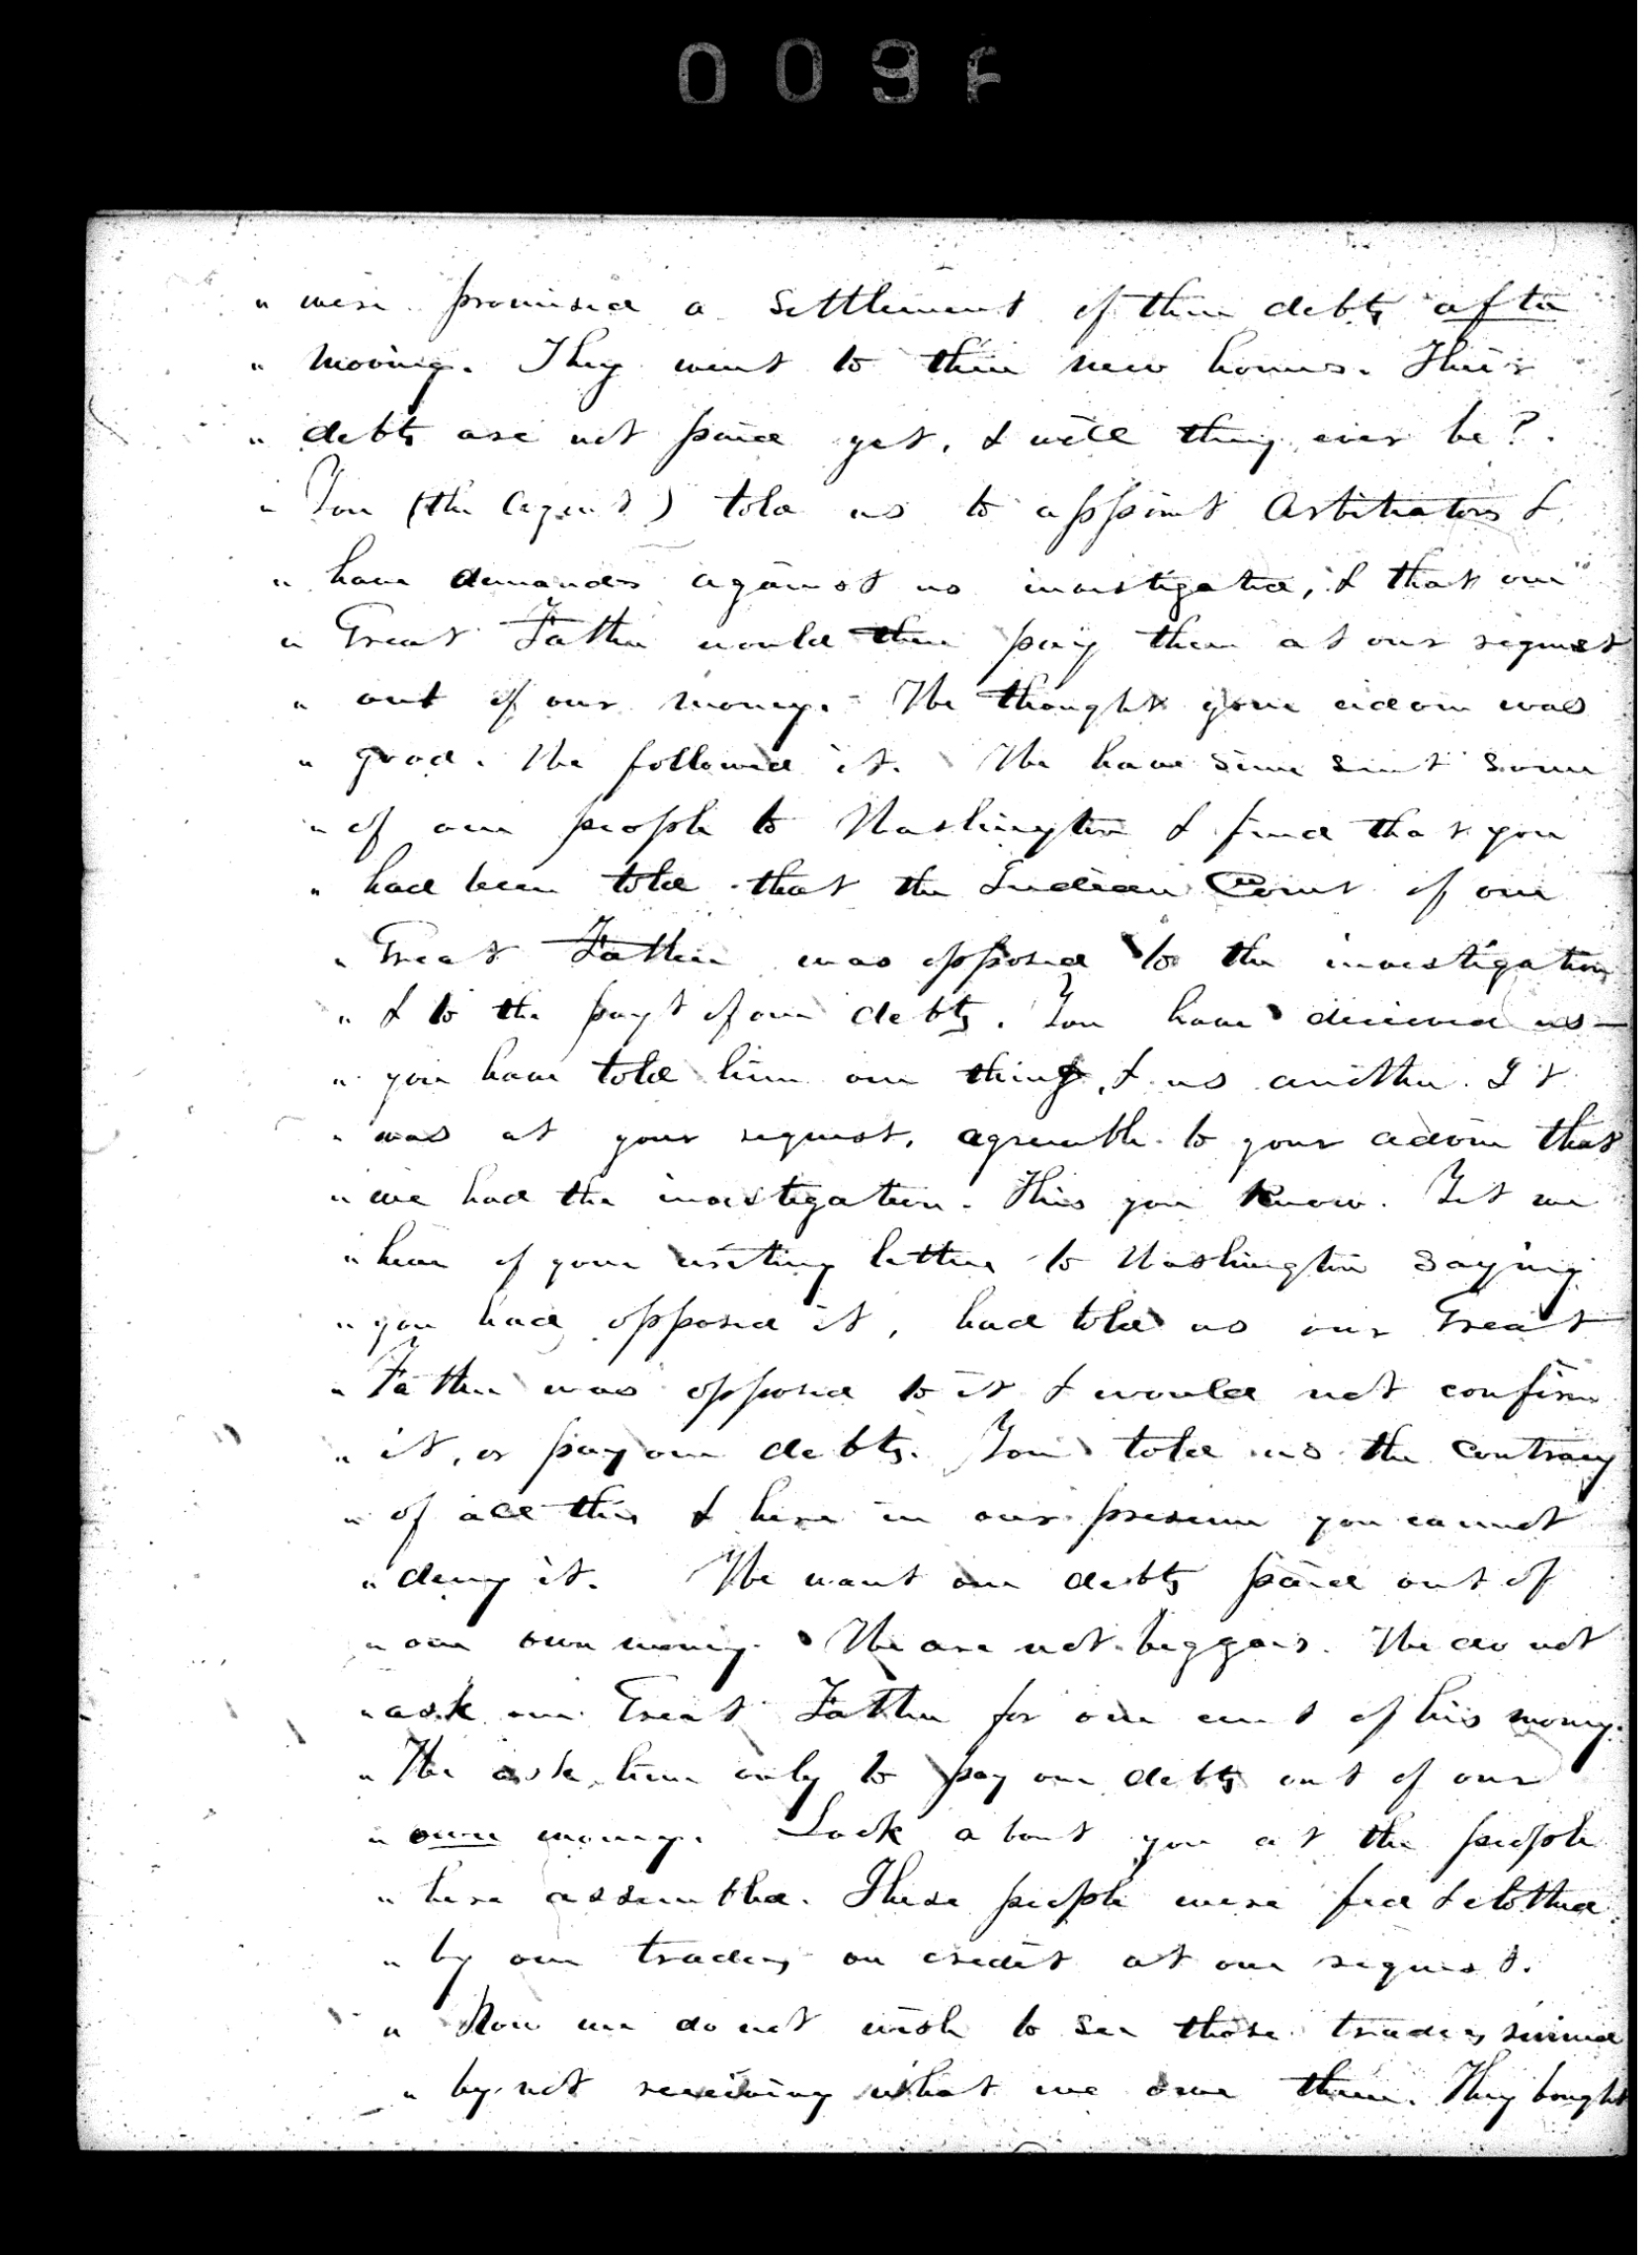 009
" were promised a settlement of their debts after
" moving. They went to their new homes. Their
" debts are not paid yet, & will they ever be?
" You (the Agent) told us to appoint Arbitrators &
" have demands against us investigated, & that our
" Great Father would then pay them at our request
" out of our money. - We thought your advice was
" good. We followed it. We have since sent some
" of our people to Washington & find that you
" had been told that the Indian Comr of our
" Great Father was opposed to the investigation
" & to the payt of our debts. You have deceived us—
" you have told him one thing, & us another. It
" was at your request, agreeable to your advice that
" we had the investigation. This you know. Yet we
" hear of your writing letters to Washington saying
" you had opposed it, had told us our Great
" Father was opposed to it & would not confirm
" it, or pay our debts. You told us the contrary
" of all this & here in our presence you cannot
" deny it. We want our debts paid out of
" our own money. We are not beggars. We do not
" ask our Great Father for one cent of his money.
" We ask him only to pay our debts out of our
" own money. Look about you at the people
" here assembled. These people were fed & clothed
" by our traders on credit at our request.
" Now we do not wish to see those traders ruined
" by not receiving what we owe them. They bought